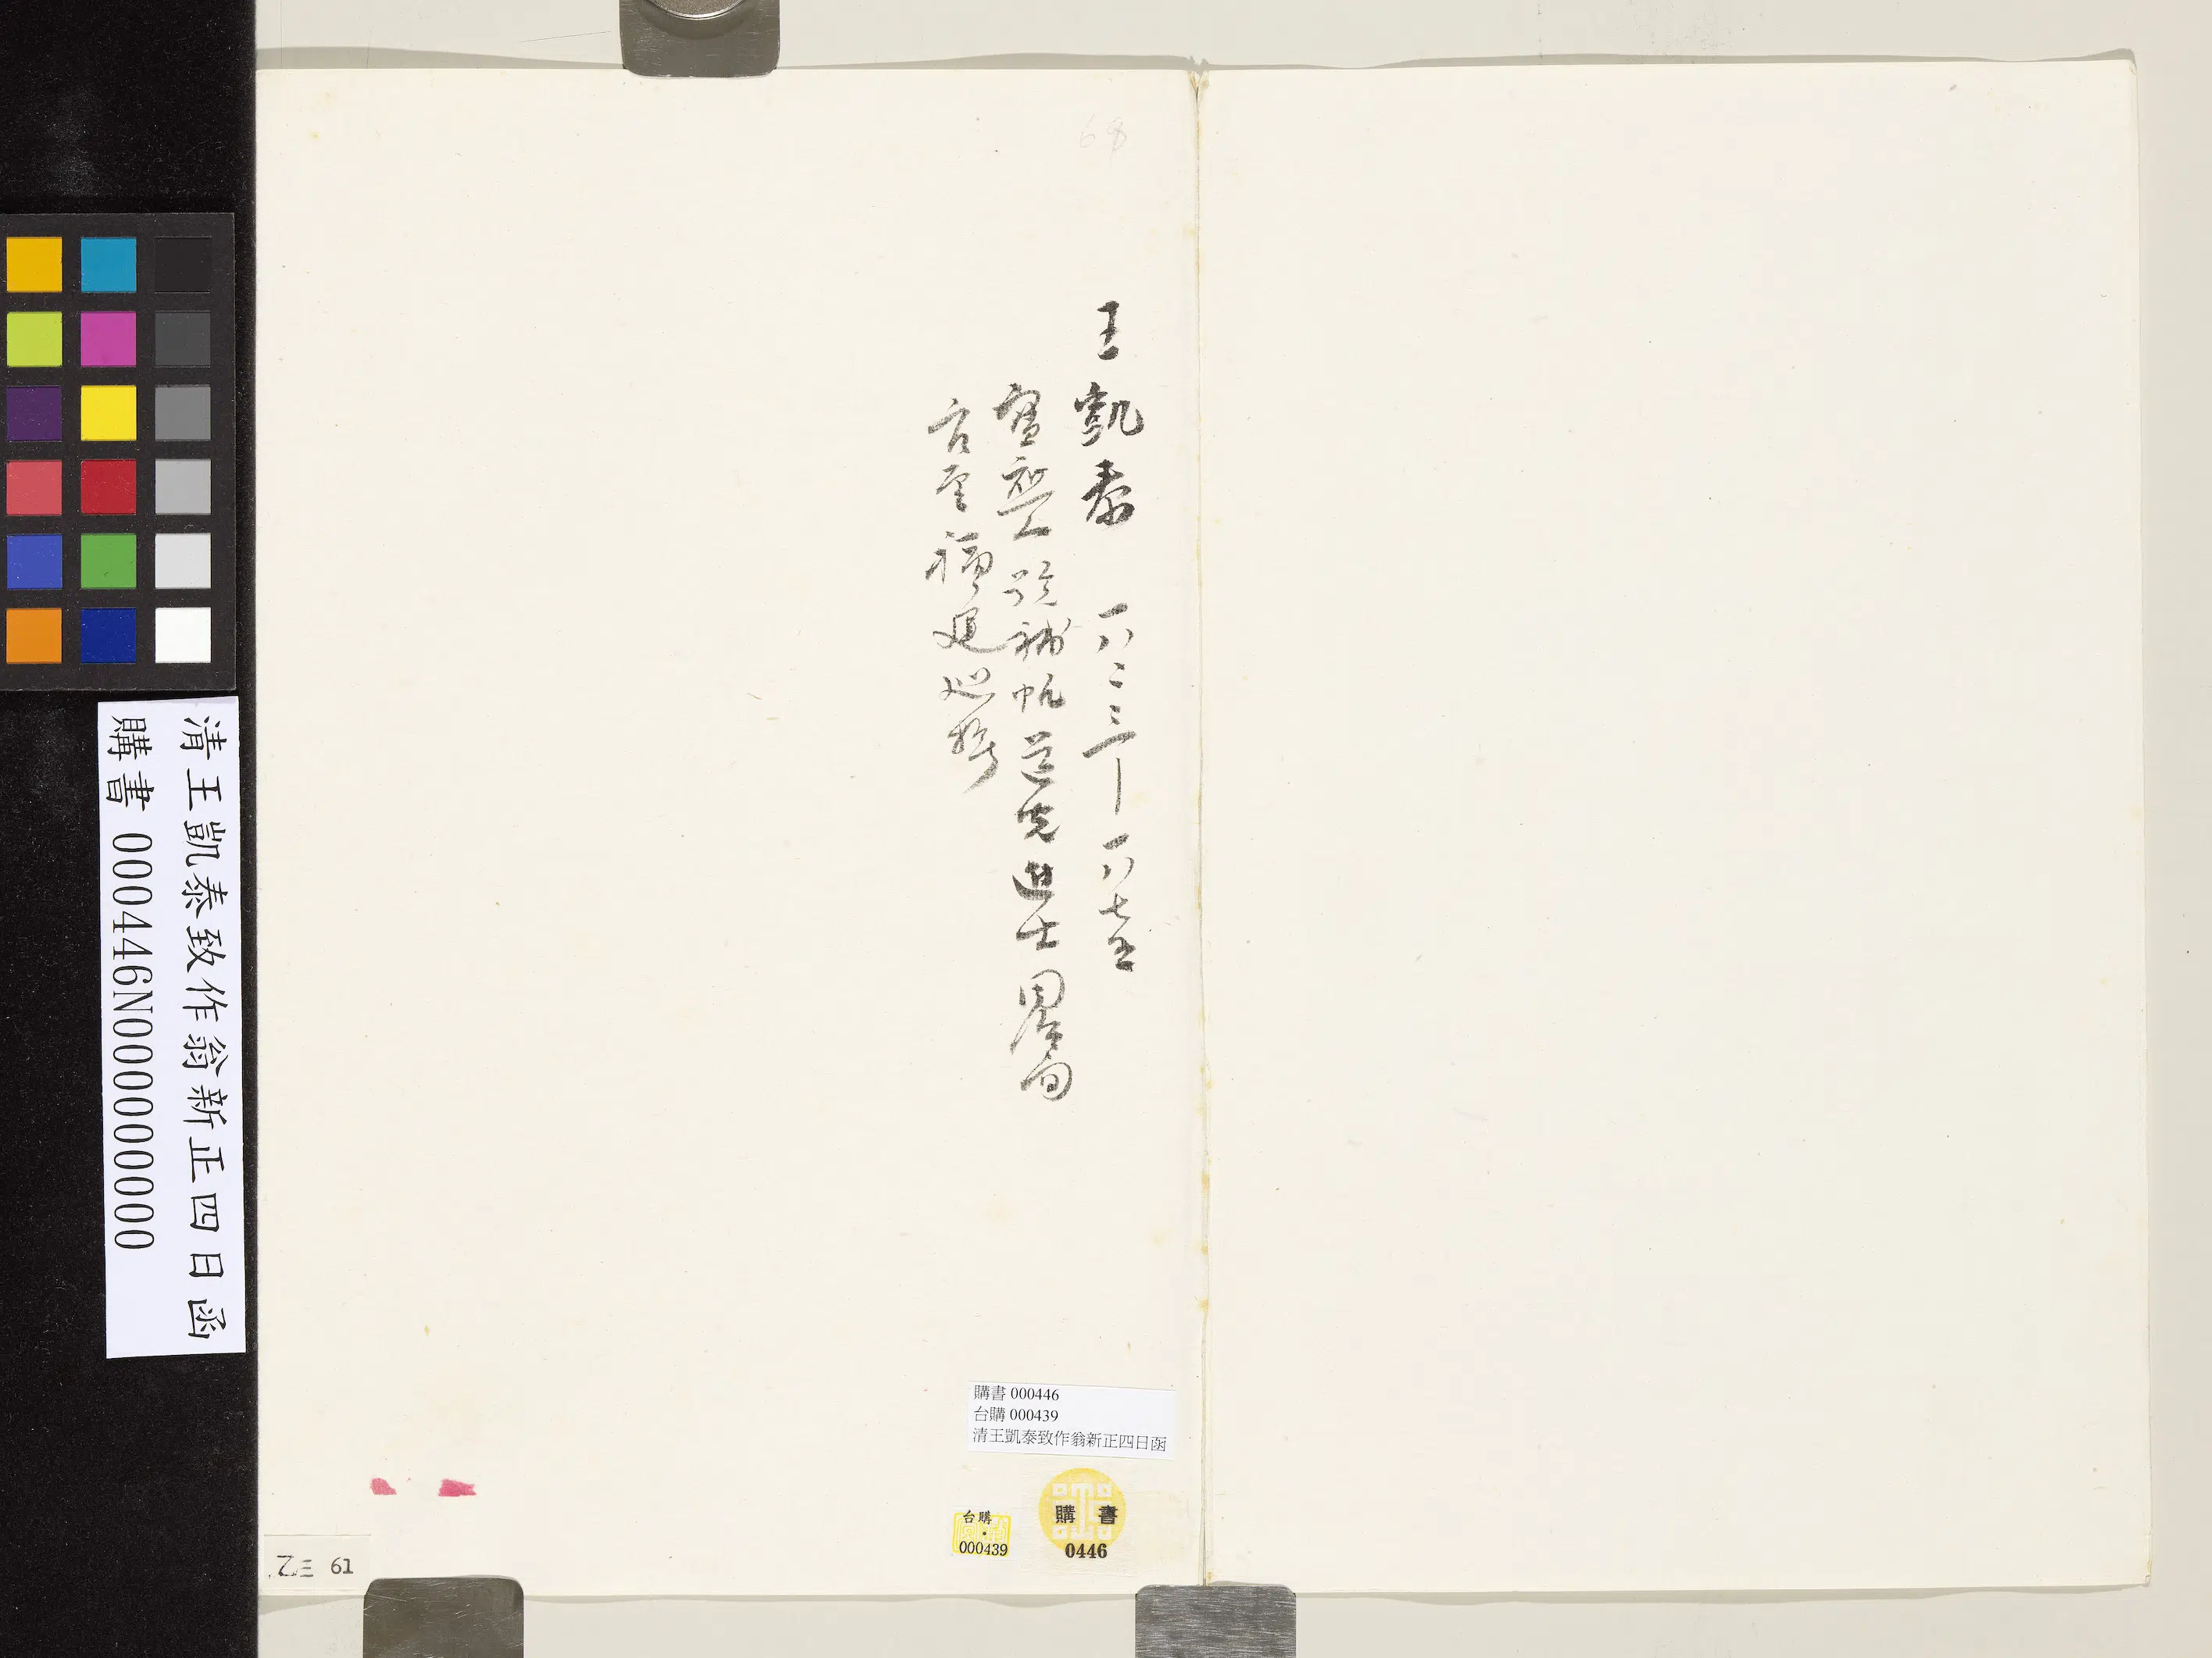 68
王凱泰　一八二三—一八七五
寶應 號補帆 道光進士 累官
官至福建巡撫
購書 000446
台購 000439
清王凱泰致作翁新正四日函
購 書
0446
台購
000439
乙三 61
清王凱泰致作翁新正四日函
購書 000446N000000000